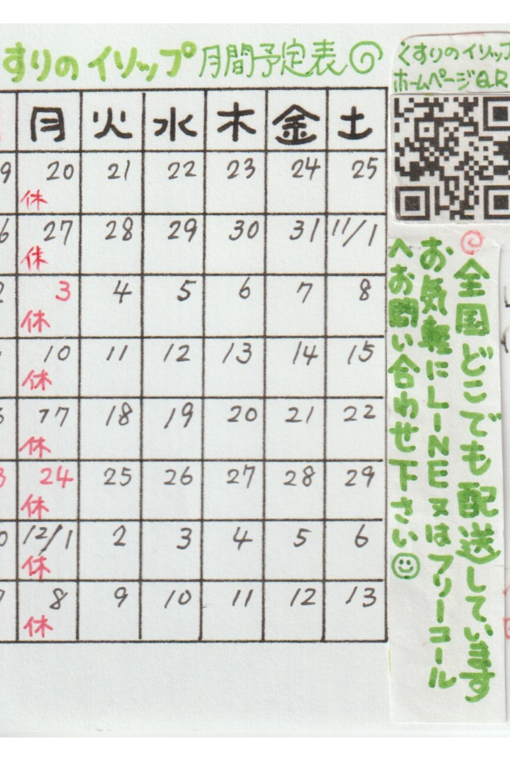 すりのイソップ月間予定表
月 火 水 木 金 土
9 20 21 22 23 24 25
休
6 27 28 29 30 31 11/1
休
2 3 4 5 6 7 8
休
10 11 12 13 14 15
休
6 17 18 19 20 21 22
休
3 24 25 26 27 28 29
休
0 12/1 2 3 4 5 6
休
7 8 9 10 11 12 13
休
くすりのイソップ
ホームページQR
全国どこでも配送しています
お気軽にLINE又はフリーコール
へお問い合わせ下さい